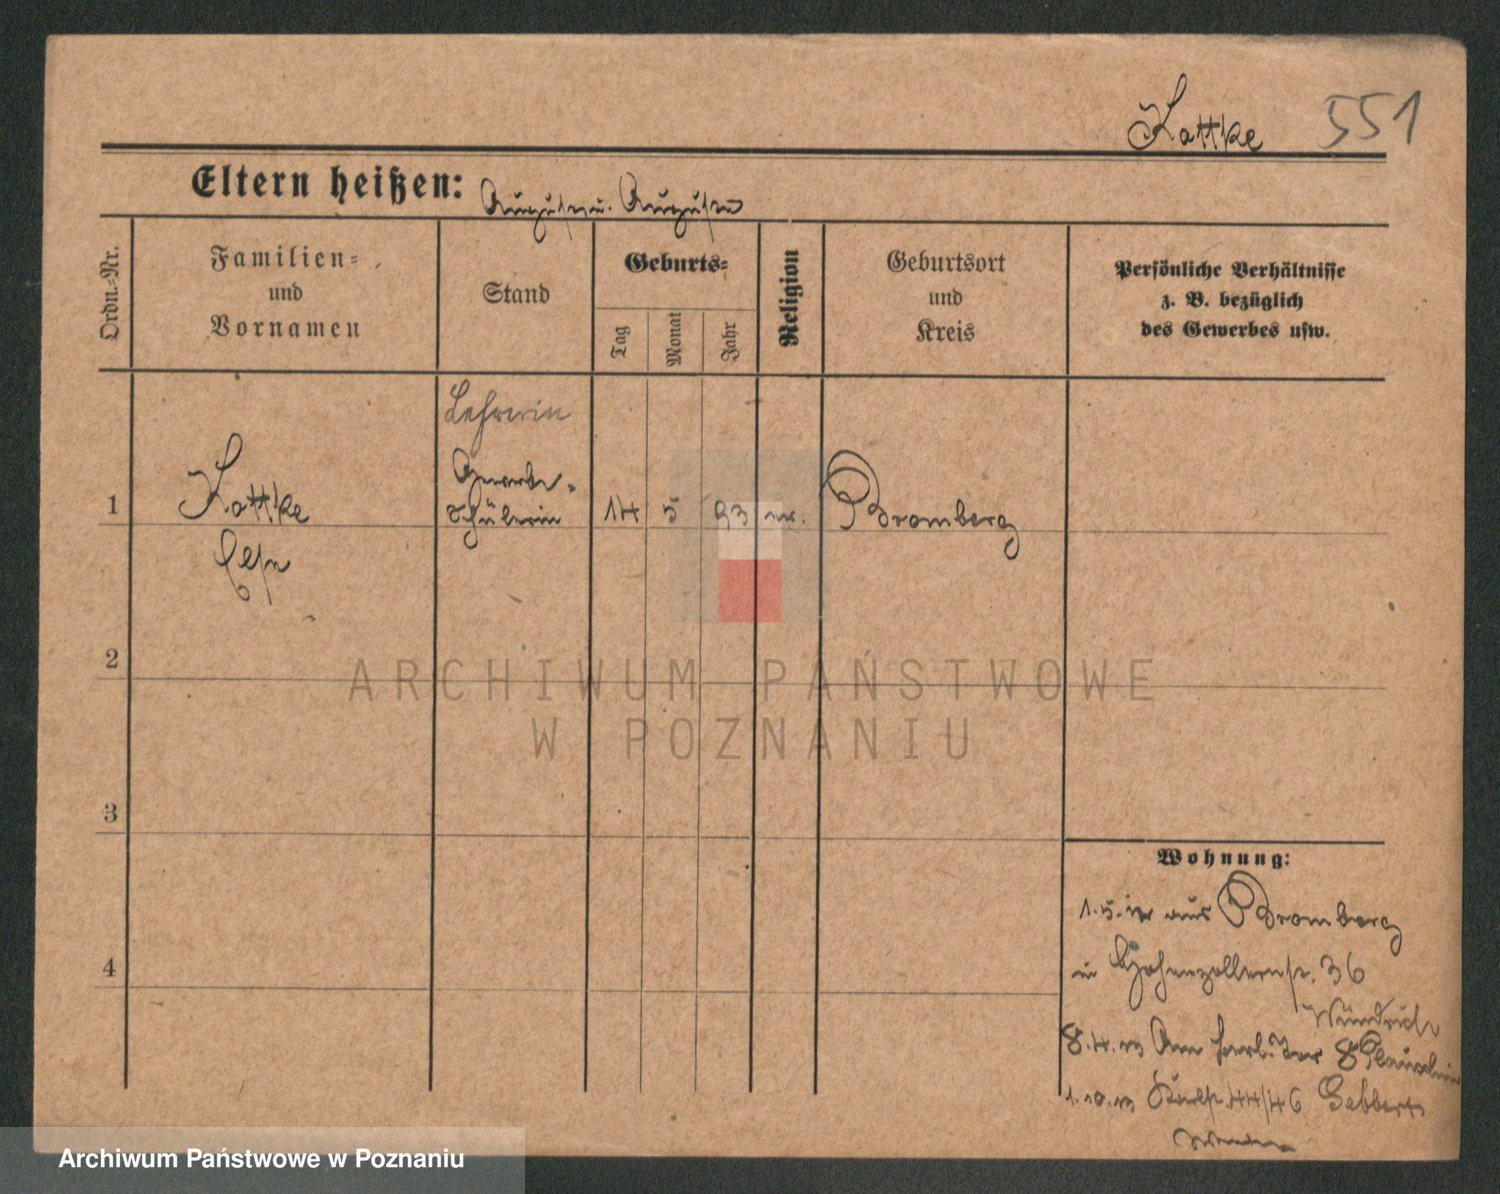 Kattke 551
Eltern heißen: August u. Auguste
Ordn.-Nr.
Familien-
und
Vornamen
Stand
Geburts-
Tag
Monat
Jahr
Religion
Geburtsort
und
Kreis
Persönliche Verhältnisse
z. B. bezüglich
des Gewerbes usw.
Lehrerin
1 Kattke Gewerbe-
schülerin 14 5 93 ev. Bromberg
Else
2
3
4
Wohnung:
1. 5. aus Bromberg
in Hohenzollernstr. 36
Am Berl. Tor 8
1. 10. Karlstr. 44/46 Gebbert
ARCHIWUM PAŃSTWOWE
W POZNANIU
Archiwum Państwowe w Poznaniu